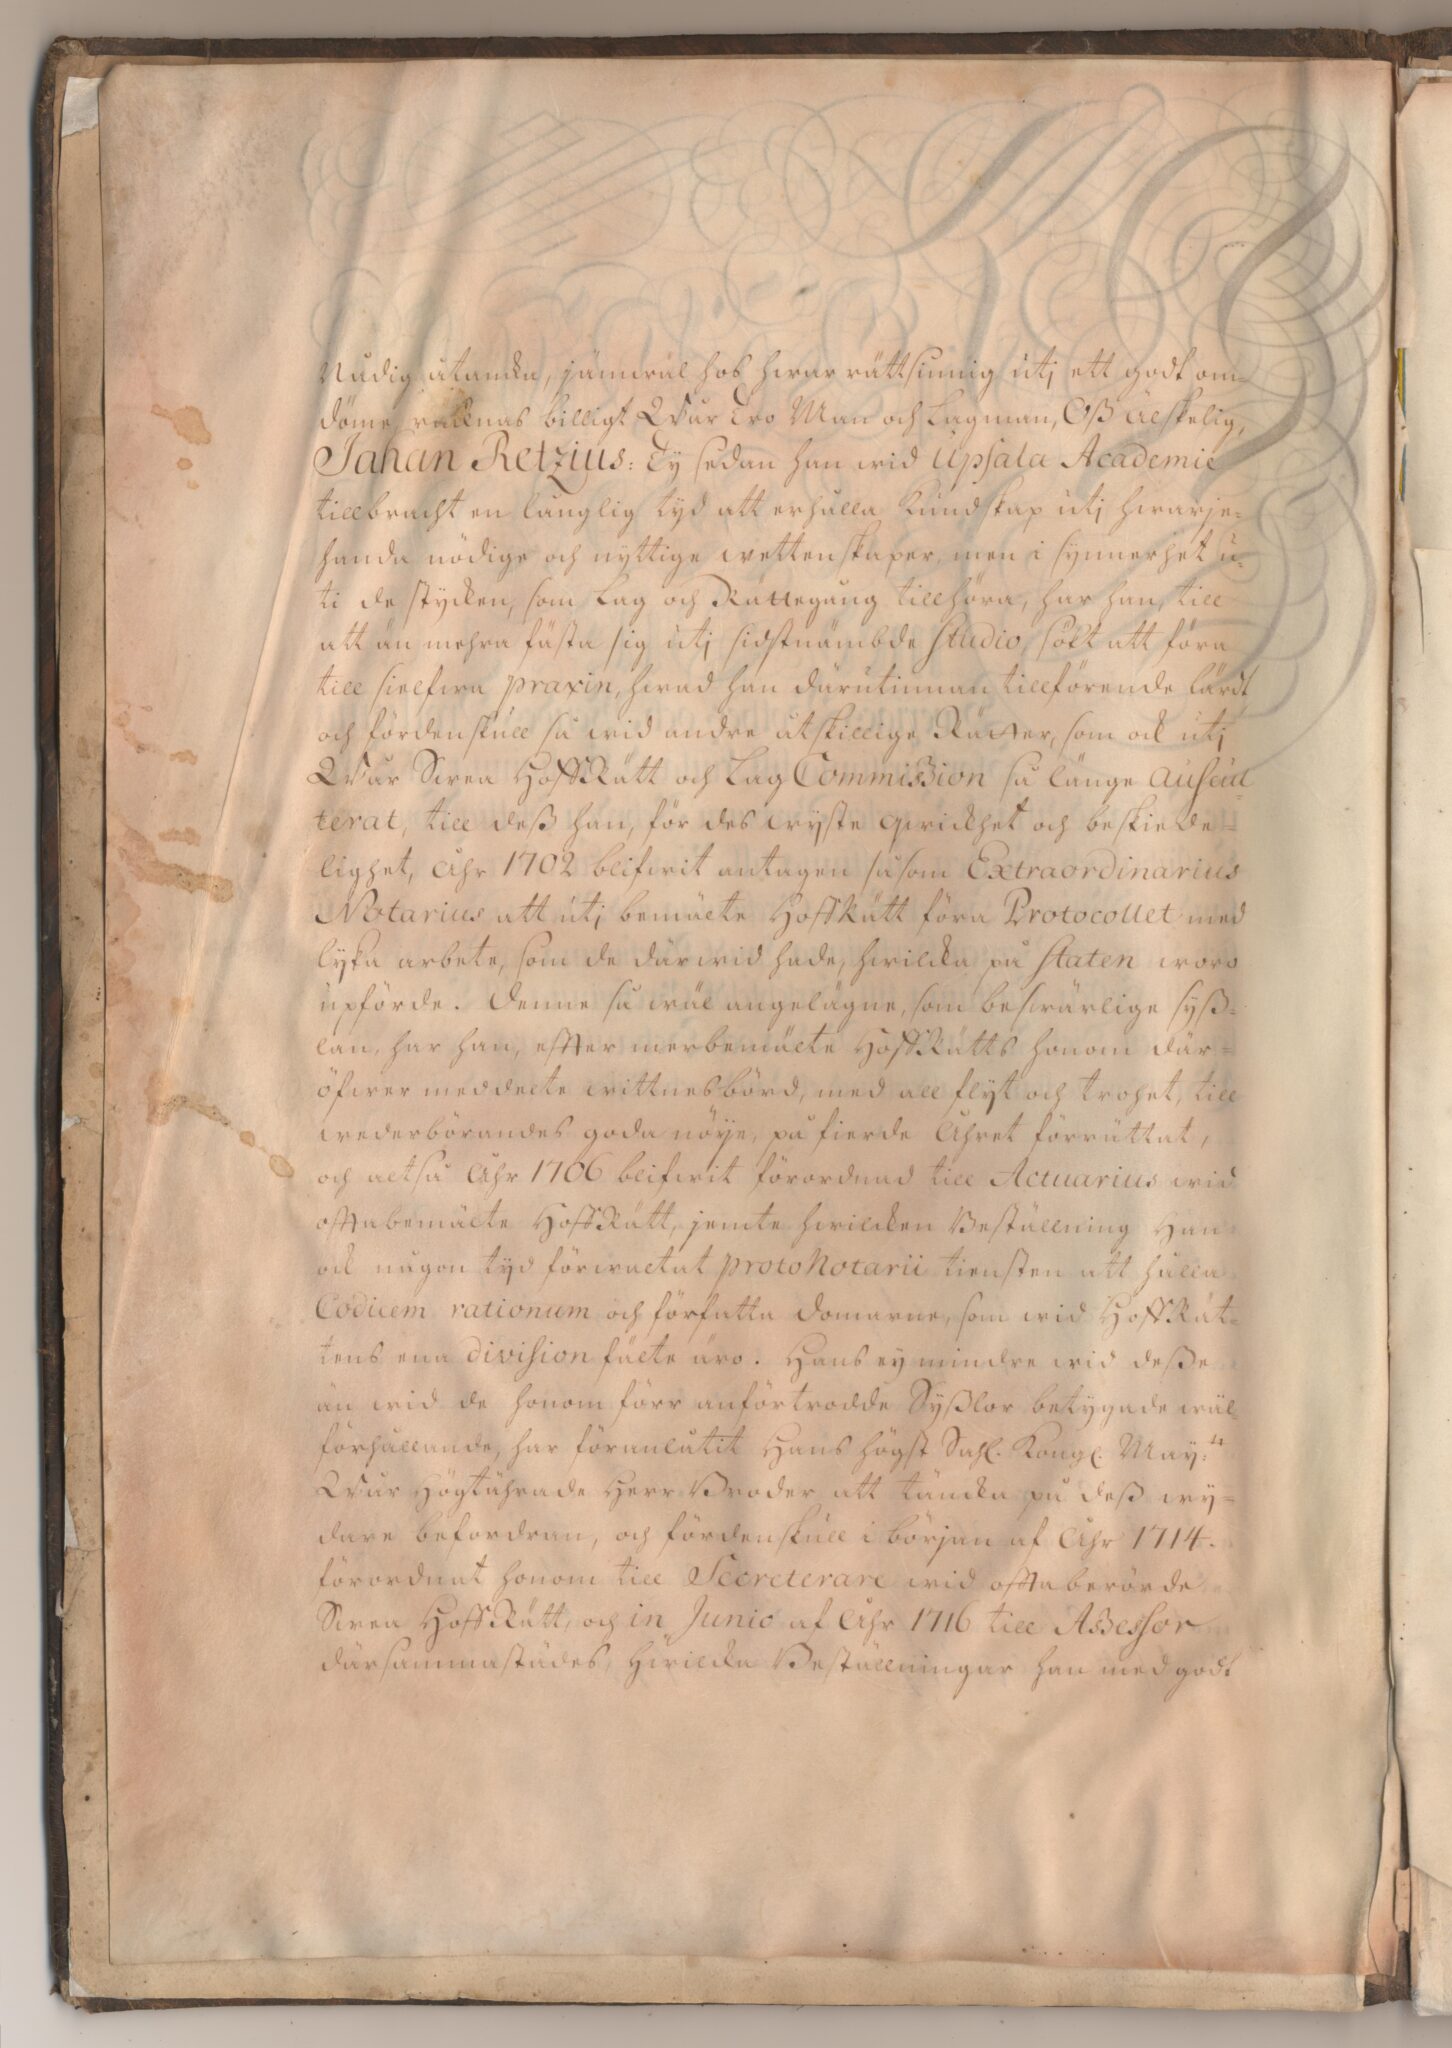 Nådig åtancka, jämwäl hos hwar rättsinnig utj ett godt om-
döme, räcknas billigt Wår Tro Man och Lagman, Oß älskelig,
Johan Retzius: Ty sedan han wid Upsala Academie
tillbracht en långlig tyd att erhålla Kundskap utj hwarje-
handa nödige och nyttige wettenskaper, men i synnerhet u-
ti de stycken, som Lag och Rättegång tillhöra, har han, till
att än mehra fästa sig utj sidstnämbde studio, sökt att föra
till sielfwa praxin, hwad han därutinnan tillförende lärdt
och fördenskull så wid andre åtskillige Rätter, som ock utj
Wår Swea HoffRätt och Lag Commission så länge auscul-
terat, till deß han, för des wyste qwickhet och beskiede-
lighet, Åhr 1702 blifwit antagen såsom Extraordinarius
Notarius att utj bemälte HoffRätt föra Protocollet med
lyka arbete, som de därwid hade, hwilcka på staten woro
upförde. Denne så wäl angelägne, som beswärlige syß-
lan, har han, effter merbemälte HoffRätts honom där-
öfwer meddelte wittnesbörd, med all flyt och trohet, till
wederbörandes goda nöye, på fierde Åhret förrättat,
och altså Åhr 1706 blifwit förordnad till Actuarius wid
offtabemälte HoffRätt, jemte hwilcken Beställning Han
ock någon tyd förwaltat protoNotarii tiensten att hålla
Codicem rationum och författa domarne, som wid HoffRät-
tens ena division fälte äro. Hans ey mindre wid deße
än wid de honom förr anförtrodde Syßlor betygade wäl-
förhållande, har föranlåtit Hans högst Sahl. Kongl. May:tt
Wår Högtährade Herr Broder att täncka på deß wy-
dare befordran, och fördenskull i början af Åhr 1714.
förordnat honom till Secreterare wid offtaberörde
Swea HoffRätt, och in Junio af Åhr 1716 till Aßessor
därsammastädes, Hwilcka Beställningar han med godt